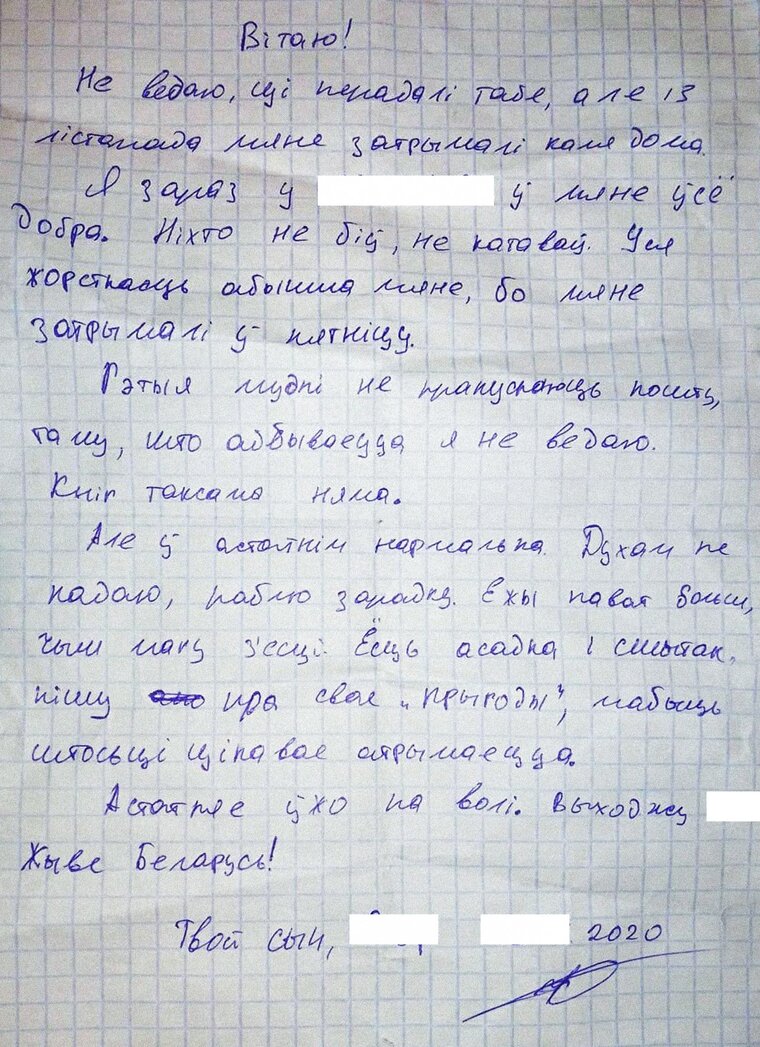 Вітаю!
Не ведаю, ці перадалі табе, але 13
лістапада мяне затрымалі каля дома.
Я зараз у ў мяне ўсё
добра. Ніхто не біў, не катаваў. Уся
жорсткасць абышла мяне, бо мяне
затрымалі ў пятніцу.
Гэтыя мудкі не прапускаюць пошту,
таму, што адбываецца я не ведаю.
Кніг таксама няма.
Але ў астатнім нармальна. Духам не
падаю, раблю зарадку. Ежы нават больш,
чым магу з'есці. Ёсць асадка і сшытак,
пішу пра свае „прыгоды“, мабыць
штосьці цікавае атрымаецца.
Астатняе ўжо на волі. Выходжу
Жыве Беларусь!
Твой сын, 2020